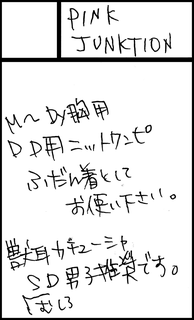 PINK
JUNKTION
M～Dy胸用
DD用ニットワンピ
ふだん着として
お使い下さい。
獣耳カチューシャ
SD男子推奨です。
むしろ